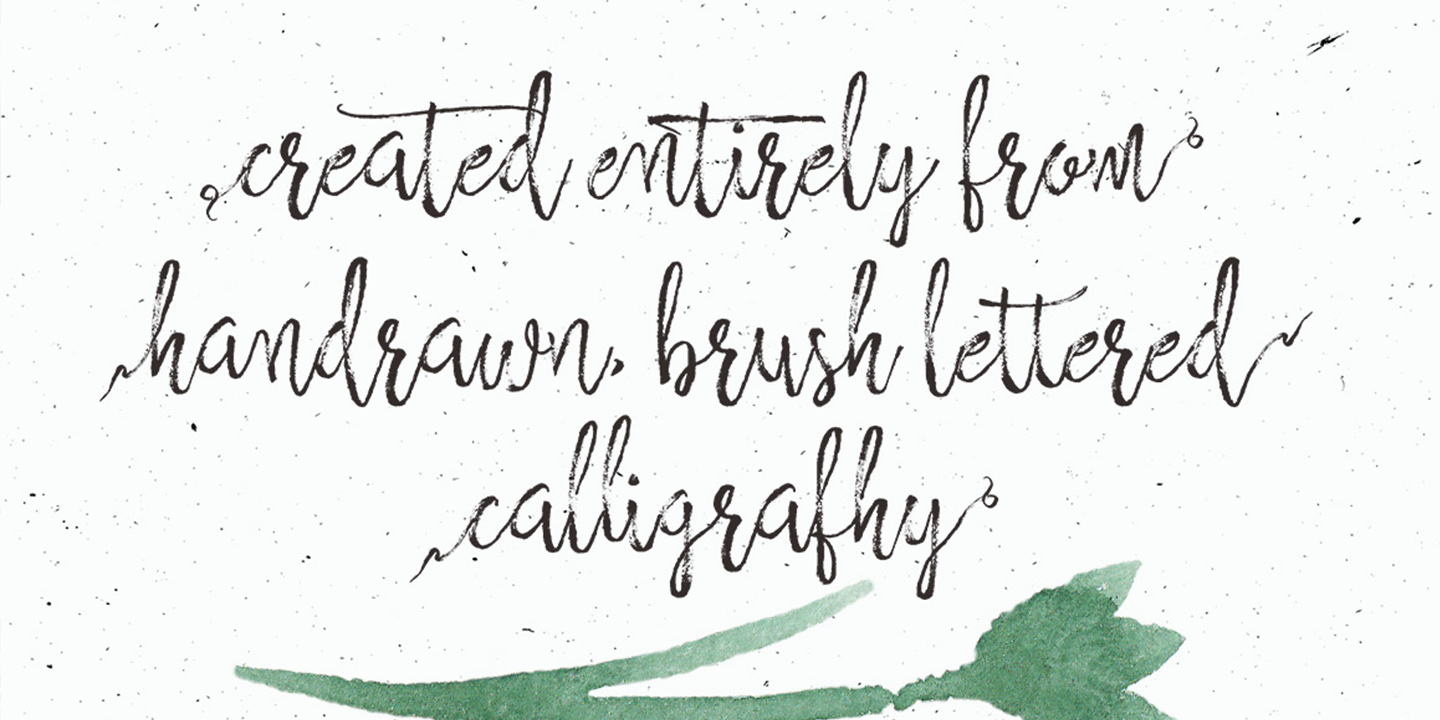 created entirely from
handrawn, brush lettered
calligrafhy